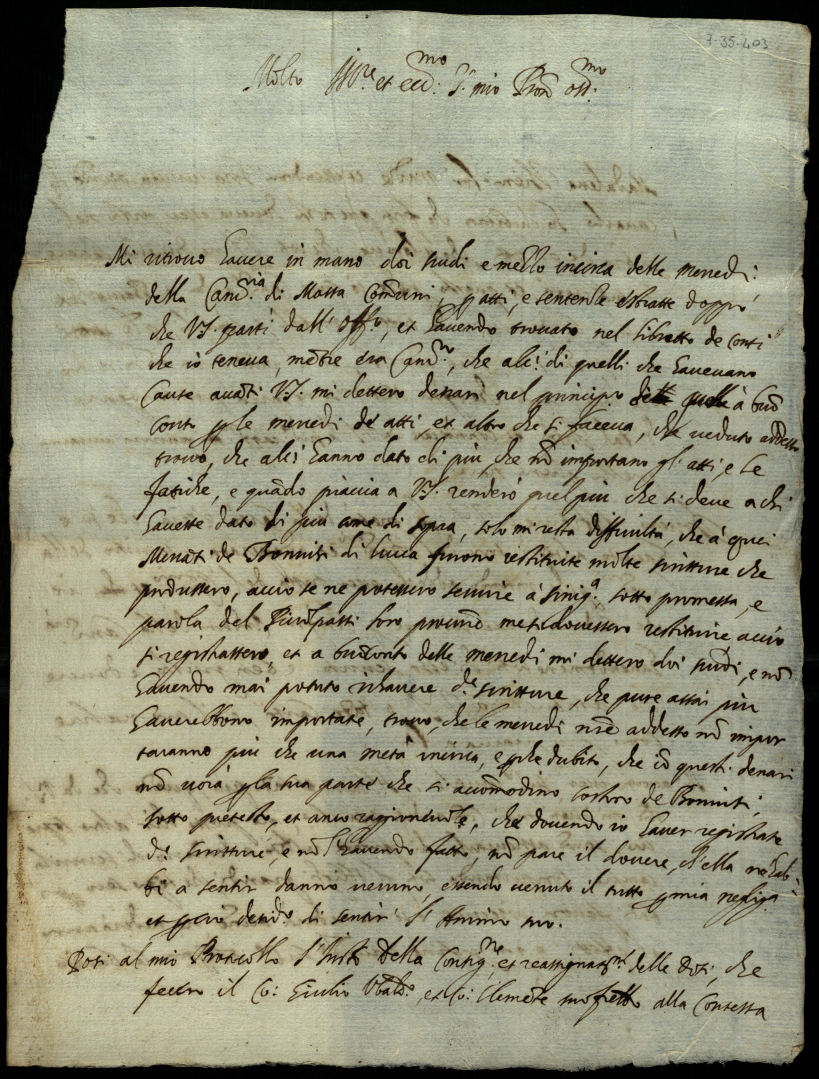 3-35-403
Molto Ill.re et ecc.mo S.r mio Pron oss.mo
Mi ritrovo havere in mano doi scudi e mezzo incirca delle mercedi
della Canc.ria di Massa Comuni, patti, e sentenze estratte doppo
che V.S. partì dall' Off.o, et havendo trovato nel libretto de conti
che io teneva, mentre era Canc.re, che alc.i di quelli che havevano
Cause avanti V.S. mi dettero denari nel principio à buon
conto p le mercedi de atti, et altro che si faceva, che veduto addesso
trovo, che alc.i hanno dato di più che non importano gl' atti, e le
fatiche, e quando piaccia a V.S. renderò quel più che si deve a chi
havesse dato di più come di sopra, solo mi resta difficultà, che à quei
Mercati de Bonvisi di lucca furono restituite molte scritture che
produssero, acciò se ne potessero servire à Sinig.a sotto promessa, e
parola del loro procur.e me si dovessero restituire acciò
si registrassero, et a buon conto delle mercedi mi dettero doi scudi, e non
havendo mai potuto rihavere d.e scritture, che pure assai più
haverebbono importate, trovo, che le mercedi sin addesso non impor
taranno più che una metà incirca, e perche dubito, che con questi denari
non vorà p la sua parte che si accomodino costoro de Bonvisi,
sotto pretesto, et anco raggionevole, che dovendo io haver registrate
d.e scritture, e non l' havendo fatto, non pare il dovere, ch'ella ne hab-
bi a sentir danno veruno, essendo venuto il tutto p mia neglig.a
et però desid.o di sentir l' Animo suo.
Posi al mio Protocollo l' Instr.o della Consig.ne et reassignat.ne delle Doti, che
fecero il Co: Giulio Ubald.o, et Co: Clemente suo fratello alla Contessa